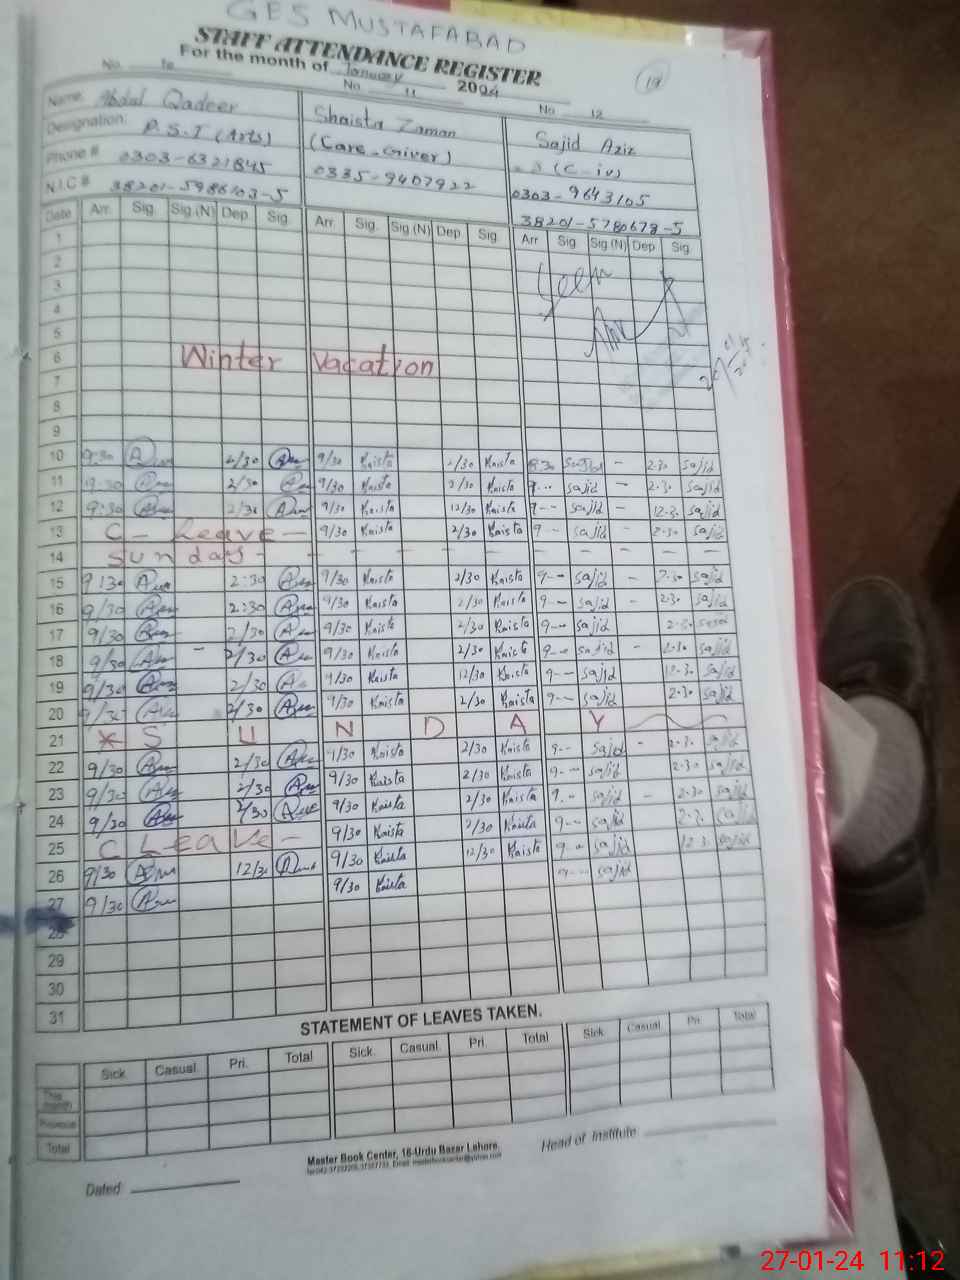 GES MUSTAFABAD
STAFF ATTENDANCE REGISTER
For the month of January 2004
No. 10 No 11 No 12
Name. Abdul Qadeer Shaista Zaman Sajid Aziz
Designation. P.S.T (Arts) (Care-Giver) (C-iv)
Phone # 0303-6321845 0335-9407922 0303-9643105
N.I.C # 38201-5986103-5 38201-5780678-5
Date Arr. Sig. Sig.(N) Dep. Sig. Arr. Sig. Sig.(N) Dep. Sig. Arr Sig Sig(N) Dep Sig.
1
2
3
4
5
6 Winter Vacation
7
8
9
10 9:30 2/30 9/30 Kaista 2/30 Kaista 8:30 Sajid - 2.30 Sajid
11 9:30 2/30 9/30 Kaista 2/30 Kaista 9-- Sajid - 2.30 Sajid
12 9:30 2/30 9/30 Kaista 12/30 Kaista 9-- Sajid - 12.3. Sajid
13 C - Leave - 9/30 Kaista 2/30 Kaista 9-- Sajid - 2.30 Sajid
14 Sunday - - - - - - - - - -
15 9:30 2:30 9/30 Kaista 2/30 Kaista 9-- Sajid - 2.30 Sajid
16 9/30 2:30 9/30 Kaista 2/30 Kaista 9-- Sajid - 2.30 Sajid
17 9/30 2/30 9/30 Kaista 2/30 Kaista 9-- Sajid 2.30
18 9/30 - 2/30 9/30 Kaista 2/30 Kaista 9-- Sajid - 2.30 Sajid
19 9/30 2/30 9/30 Kaista 12/30 Kaista 9-- Sajid 12.30 Sajid
20 9/30 2/30 9/30 Kaista 2/30 Kaista 9-- Sajid 2.30 Sajid
21 S U N D A Y
22 9/30 2/30 9/30 Kaista 2/30 Kaista 9-- Sajid - 2.30 Sajid
23 9/30 2/30 9/30 Kaista 2/30 Kaista 9-- Sajid 2.30 Sajid
24 9/30 2/30 9/30 Kaista 2/30 Kaista 9-- Sajid - 2.30 Sajid
25 C Leave - 9/30 Kaista 2/30 Kaista 9-- Sajid
26 9/30 12/30 9/30 Kaista 12/30 Kaista 9-- Sajid 12.3. Sajid
27 9/30 9/30 Kaista 9-- Sajid
28
29
30
31
STATEMENT OF LEAVES TAKEN.
Sick. Casual. Pri. Total Sick. Casual. Pri. Total Sick. Casual Pri. Total
This month
Previous
Total
Master Book Center, 16-Urdu Bazar Lahore.
Head of Institute
Dated:
27-01-24 11:12